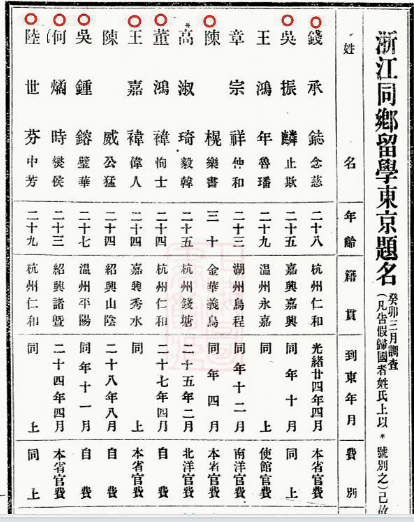 浙江同鄉留學東京題名
癸卯三月調查
(凡告假歸國者姓氏上以*號別之)已故
姓 名 年齡 籍貫 到東年月 費別
錢承鋕 念慈 二十八 杭州仁和 光緒廿四年四月 本省官費
吳振麟 止欺 二十五 嘉興嘉興 同年十月 同上
王鴻年 魯璠 二十九 溫州永嘉 同上 使館官費
章宗祥 仲和 二十三 湖州烏程 同年十二月 南洋官費
陳榥 樂書 三十 金華義烏 同年四月 本省官費
*高淑琦 毅韓 二十五 杭州錢塘 二十五年二月 北洋官費
董鴻禕 恂士 二十四 杭州仁和 二十七年四月 自費
王嘉禕 偉人 二十四 嘉興秀水 同上 本省官費
陳威 公猛 二十四 紹興山陰 二十八年八月 自費
吳鍾鎔 璧華 二十七 溫州平陽 同年十一月 自費
何燏時 燮侯 二十三 紹興諸暨 二十四年四月 本省官費
陸世芬 中芳 二十九 杭州仁和 同上 同上